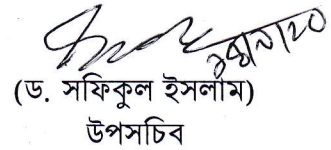 (ড. সফিকুল ইসলাম)
উপসচিব